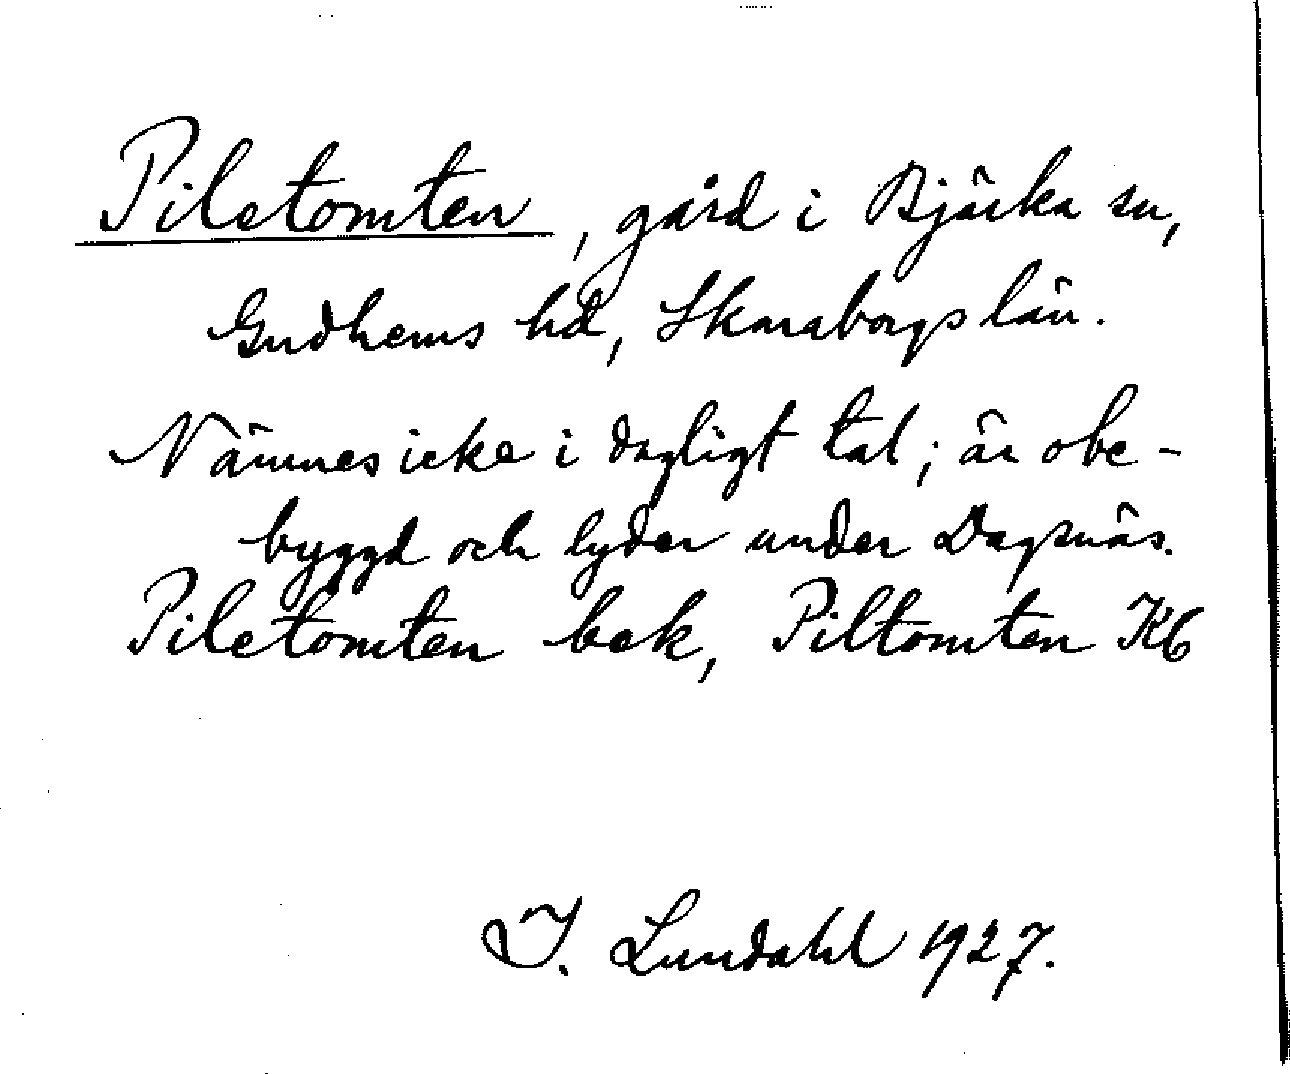 Piletomten, gård i Bjärka sn,
Gudhems hd, Skaraborgs län.
Nämnes icke i dagligt tal; är obe-
byggd och lyder under Dagsnäs.
Piletomten bek, Piltomten Kb
I. Lundahl 1927.